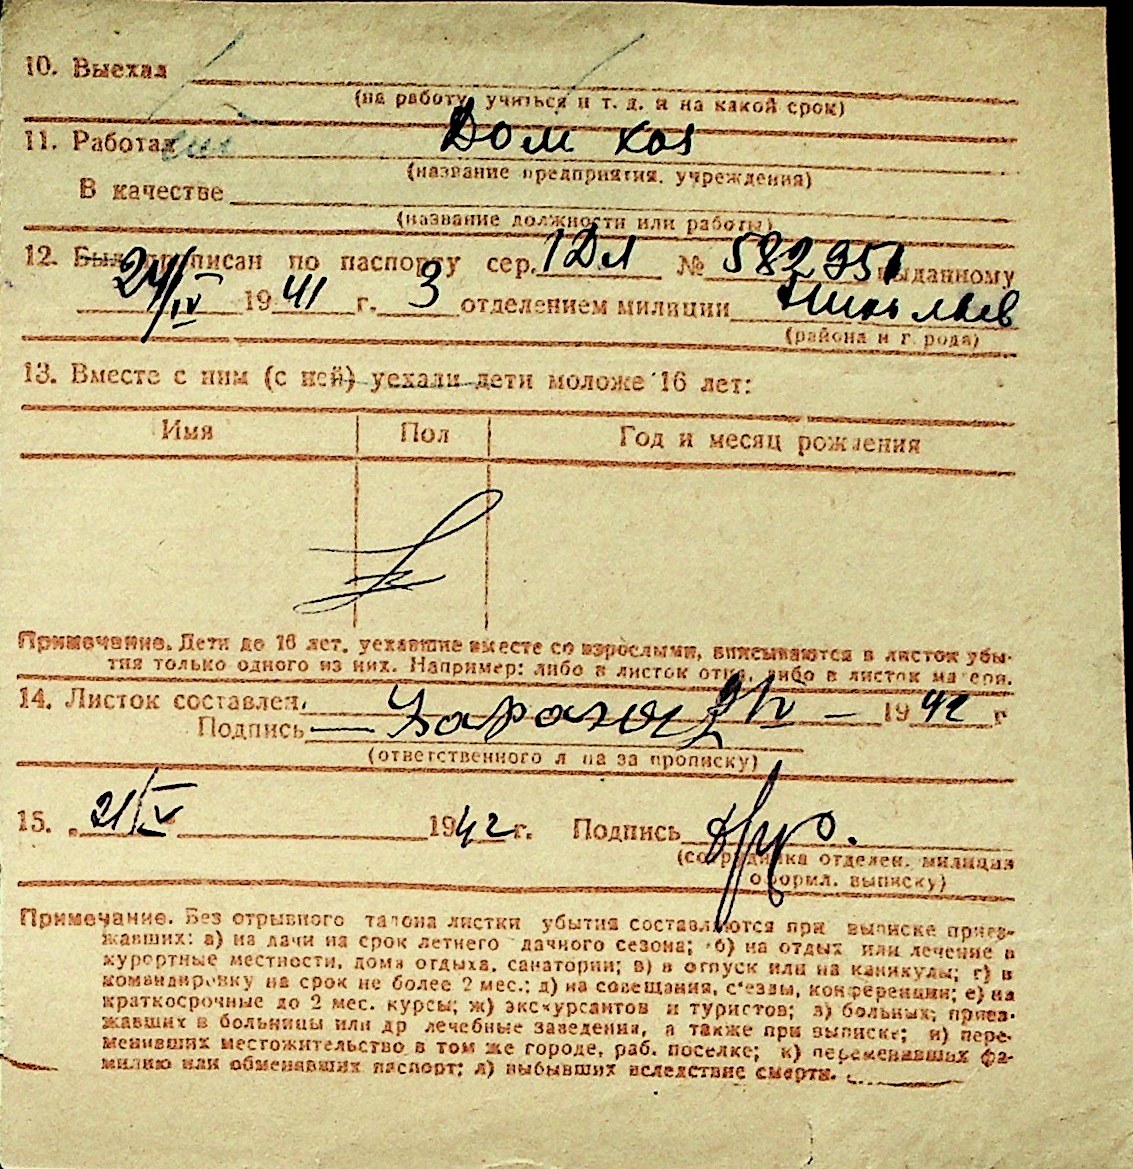 10. Выехал
(на работу, учиться и т. д. и на какой срок)
11. Работал Дом хоз
(название предприятия, учреждения)
В качестве
(название должности или работы)
12. Был прописан по паспорту сер. 1 Дл № 582951 выданному
24/IV 1941 г. 3 отделением милиции
(района и города)
13. Вместе с ним (с ней) уехали дети моложе 16 лет:
Имя Пол Год и месяц рождения
Примечание. Дети до 16 лет, уехавшие вместе со взрослыми, вписываются в листок убы-
тия только одного из них. Например: либо в листок отца, либо в листок матери.
14. Листок составлен, IV — 1942 г
Подпись
(ответственного лица за прописку)
15. 21/V 1942 г. Подпись
(сотрудника отделен. милиции
оформл. выписку)
Примечание. Без отрывного талона листки убытия составляются при выписке приез-
жавших: а) на дачи на срок летнего дачного сезона; б) на отдых или лечение в
курортные местности, дома отдыха, санатории; в) в отпуск или на каникулы; г) в
командировку на срок не более 2 мес.; д) на совещания, с'езды, конференции; е) на
краткосрочные до 2 мес. курсы; ж) экскурсантов и туристов; з) больных, приез-
жавших в больницы или др лечебные заведения, а также при выписке; и) пере-
менивших местожительство в том же городе, раб. поселке; к) переменивших фа-
милию или обменявших паспорт; л) выбывших вследствие смерти.